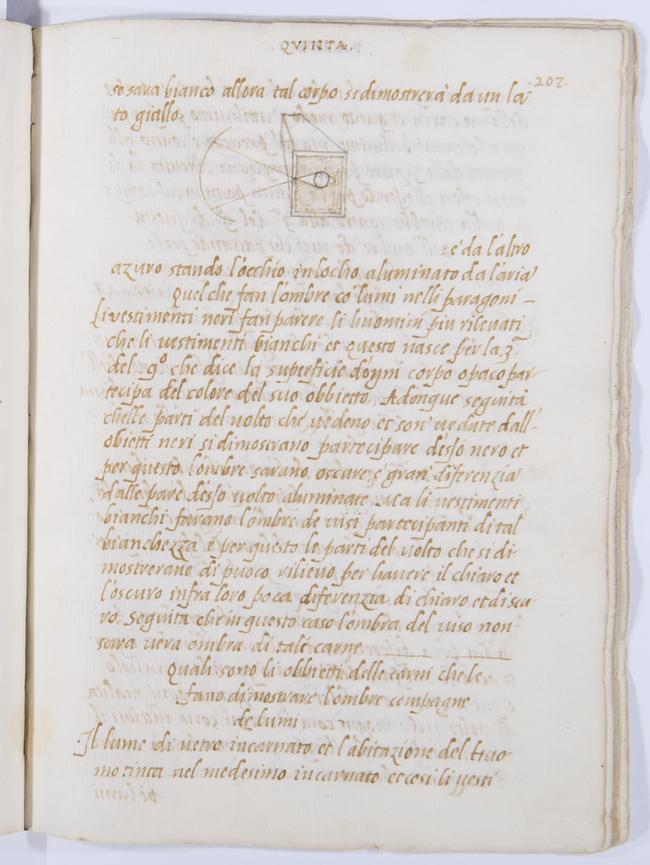 QVINTA.
.207.
se sara bianco allora tal corpo si dimostrera da un la-
to giallo
e da l'altro
azuro stando l'occhio in locho aluminato da l'aria
Quel che fan l'ombre co' lumi nelli paragoni -
Li vestimenti neri fan parere li huomini piu rilevati
che li vestimenti bianchi et questo nasce per la .3.
del .9.º che dice la superficie d'ogni corpo opaco par-
tecipa del colore del suo obbietto. Adonque seguita
chelle parti del volto che vedeno et son vedute dall'
obietti neri si dimostrano partecipare d'esso nero et
per questo l'ombre sarano oscure, e gran diferenzia
dalle pare d'esso volto aluminate. Ma li vestimenti
bianchi farano l'ombre de visi partecipanti di tal
bianchezza e per questo le parti del volto che si di
mostrerano di puoco rilievo per havere il chiaro et
l'oscuro infra loro poca diferenzia di chiaro et d'iscu
ro. Seguita che in questo caso l'ombra del viso non
sara vera ombra di tale carne
Quali sono li obbietti delle carni che le
fano dimostrare l'ombre compagne
de lumi
Il lume di vetro incarnato et l'abitazione del trao
mo tinta nel medesimo incarnato et cosi li vesti